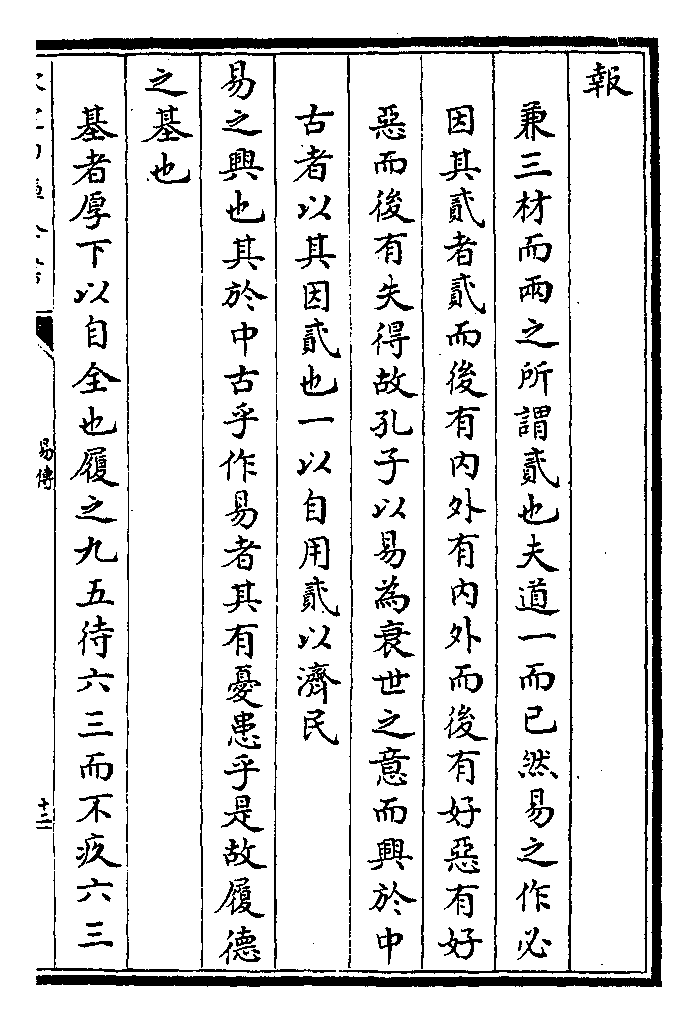 報
兼三材而兩之所謂貳也夫道一而已然易之作必
因其貳者貳而後有內外有內外而後有好惡有好
惡而後有失得故孔子以易為衰世之意而興於中
古者以其因貳也一以自用貳以濟民
易之興也其於中古乎作易者其有憂患乎是故履德
之基也
基者厚下以自全也履之九五待六三而不疚六三
易傳
十三